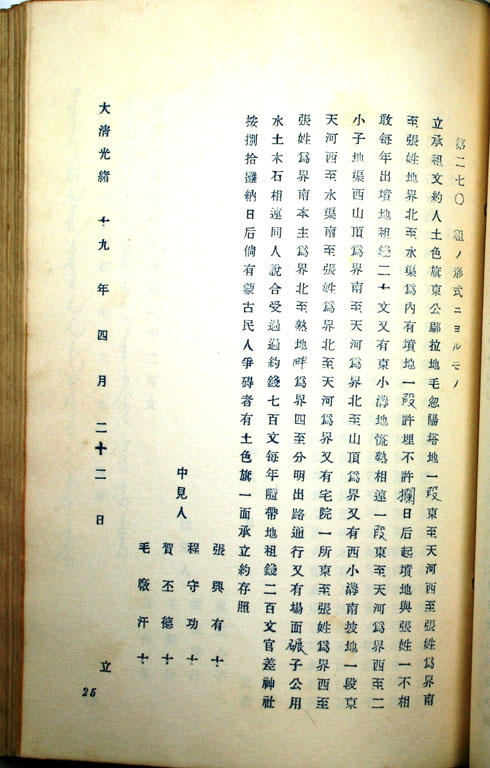 第二七〇　租ノ形式ニヨルモノ
立承租文約人土色旗東公鄢拉地毛忽陽塔地一段東至天河西至張姓爲界南
至張姓地界北至水渠爲內有墳地一段許埋不許攔日后起墳地與張姓一不相
敢每年出墳地租錢二十文又有東小溝地慌熟相連一段東至天河爲界西至二
小子地渠西山頂爲界南至天河爲界北至山頂爲界又有西小溝南坡地一段東
天河西至水渠南至張姓爲界北至天河爲界又有宅院一所東至張姓爲界西至
張姓爲界南本主爲界北至熟地畔爲界四至分明出路通行又有場面碾子公用
水土木石相連同人說合受過過約錢七百文每年隨帶地租錢二百文官差神社
按捌拾攤納日后倘有蒙古民人爭碍者有土色旗一面承立約存照
中見人
張興有十
程守功十
賀丕德十
毛廠汗十
大淸光緒十九年四月二十二日　立
25